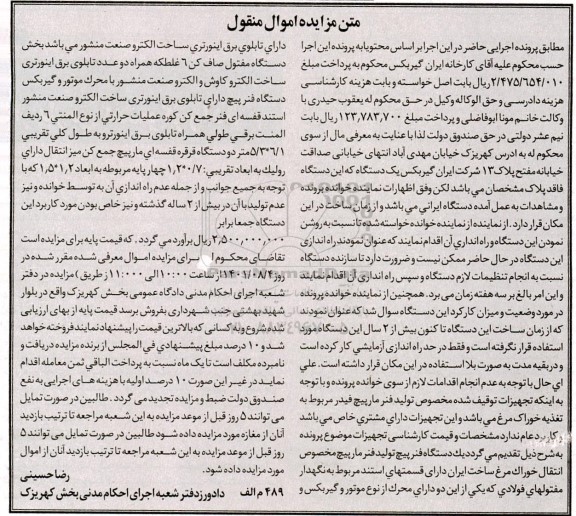 متن مزایده اموال منقول
مطابق پرونده اجرایی حاضر در این اجرا بر اساس محتویا به پرونده این اجرا
حسب محکوم علیه آقای کارخانه ایران گیربکس محکوم به پرداخت مبلغ
۲/۴۷۵/۶۵۴/۰۱۰ ریال بابت اصل خواسته و بابت هزینه کارشناسی
هزینه دادرسی و حق الوکاله وکیل در حق محکوم له یعقوب حیدری با
وکالت خانم مونا ابوفاضلی و پرداخت مبلغ ۱۲۳,۷۸۳,۷۰۰ ریال بابت
نیم عشر دولتی در حق صندوق دولت لذا با عنایت به معرفی مال از سوی
محکوم له به ادرس کهریزک خیابان مهدی آباد انتهای خیابانی صداقت
خیابانه مفتح پلاک ۱۳ شرکت ایران گیربکس یک دستگاه که این دستگاه
فاقد پلاک مشخصات می باشد لکن وفق اظهارات نماینده خوانده پرونده
و مشاهدات به عمل آمده دستگاه ایرانی می باشد و از زمان ساخت در این
مکان قرار دارد. از نماینده از نماینده خوانده خواسته شده تا نسبت به روشن
نمودن این دستگاه و راه اندازی آن اقدام نمایند که عنوان نمودند راه اندازی
این دستگاه در حال حاضر ممکن نیست و ضرورت دارد تا سازنده دستگاه
نسبت به انجام تنظیمات لازم دستگاه و سپس راه اندازی آن اقدام نماید
و این امر بالغ بر سه هفته زمان می برد. همچنین از نماینده خوانده پرونده
در مورد وضعیت و میزان کارکرد این دستگاه سوال شد که عنوان نمودند
که از زمان ساخت این دستگاه تا کنون بیش از ۲ سال این دستگاه مورد
استفاده قرار نگرفته است و فقط در حد راه اندازی آزمایشی کار کرده است
و در بقیه مدت به صورت بلا استفاده در این مکان قرار داشته است. علی
ای حال با توجه به عدم انجام اقدامات لازم از سوی خوانده پرونده و با توجه
به اینکه تجهیزات توقیف شده مخصوص تولید فنر مارپیچ فیدر مربوط به
تغذیه خوراک مرغ می باشد و این تجهیزات دارای مشتری خاص می باشد
و کاربرد عام ندارد مشخصات و قیمت کارشناسی تجهیزات موضوع پرونده
به شرح ذیل تقدیم می گردد یک دستگاه فنر پیچ تولید فنر مارپیچ مخصوص
انتقال خوراک مرغ ساخت ایران دارای قسمتهای استند مربوط به نگهدار
مفتولهای فولادی که یکی از این دو دارای محرک از نوع موتور و گیربکس و
دارای تابلوی برق اینورتری ساخت الکترو صنعت منشور می باشد بخش
دستگاه مفتول صاف کن ۶ غلطکه همراه دو عدد تابلوی برق اینورتری
ساخت الکترو کاوش و الکترو صنعت منشور با محرک موتور و گیربکس
دستگاه فنر پیچ دارای تابلوی برق اینورتری ساخت الکترو صنعت منشور
استند قفسه ای فنر جمع کن کوره عملیات حرارتی از نوع المنتی ۶ ردیف
المنت برقی طولی همراه تابلوی برق اینورتر و به طول کلی تقریبی
۵/۳*۶/۱ متر دو دستگاه قرقره قفسه ای مارپیچ جمع کن میز انتقال دارای
رولیک به ابعاد تقریبی: ۱,۲۰*۰/۷ چهار پایه مربوطه به ابعاد ۱,۲*۱,۵ که با
توجه به جمیع جوانب و از جمله عدم راه اندازی آن به توسط خوانده و نیز
عدم تولید با آن در بیش از ۲ ساله گذشته و نیز خاص بودن مورد کاربرد این
دستگاه جمعا برابر
۲,۵۰۰,۰۰۰,۰۰۰ ریال برآورد می گردد. که قیمت پایه برای مزایده است
تقاضای محکوم له برای مزایده اموال معرفی شده مقرر شده در
روز ۱۴۰۱/۰۸/۴ از ساعت ۱۰:۰۰ الی ۱۱:۰۰۰ از طریق) مزایده در دفتر
شعبه اجرای احکام مدنی دادگاه عمومی بخش کهریزک واقع در بلوار
شهید بهشتی جنب شهرداری بفروش برسد قیمت پایه از بهای ارزیابی
شده شروع و به کسانی که بالاترین قیمت را پیشنهاد نمایند فروخته خواهد
شد و ۱۰ درصد مبلغ پیشنهادی فی المجلس از برنده مزایده دریافت و
نامبرده مکلف است تا یک ماه نسبت به پرداخت الباقی ثمن معامله اقدام
نماید در غیر این صورت ۱۰ درصد اولیه با هزینه های اجرایی به نفع
صندوق دولت ضبط و مزایده تجدید می گردد. طالبین در صورت تمایل
می توانند ۵ روز قبل از موعد مزایده به این شعبه مراجعه تا ترتیب بازدید
آنان از مغازه مورد مزایده داده شود طالبین در صورت تمایل می توانند ۵
روز قبل از موعد مزایده به این شعبه مراجعه تا ترتیب بازدید آنان از اموال
مورد مزایده داده شود.
رضا حسینی
۴۸۹ م الف دادورز دفتر شعبه اجرای احکام مدنی بخش کهریزک